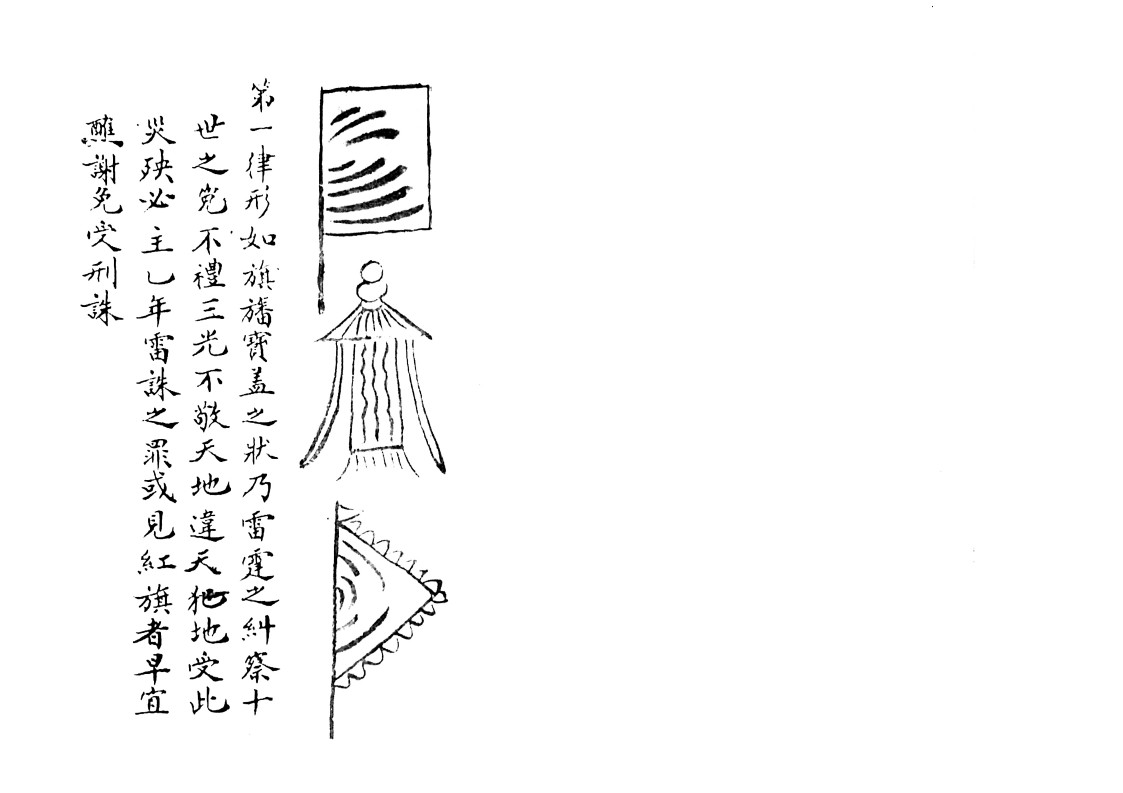 第一律形如旗旛寳盖之狀乃雷霆之糾察十
世之寃不禮三光不敬天地違天犯地受此
災殃必主乚年雷誅之罪或見紅旗者早宜
醮謝免受刑誅